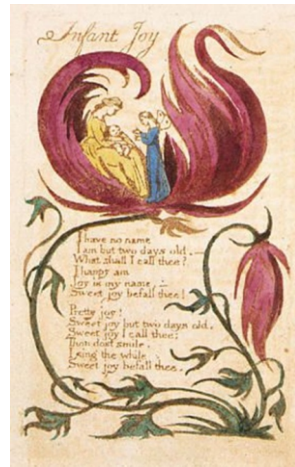 Infant Joy
I have no name
I am but two days old.—
What shall I call thee?
I happy am
Joy is my name,—
Sweet joy befall thee!
Pretty joy!
Sweet joy but two days old.
Sweet joy I call thee;
Thou dost smile.
I sing the while
Sweet joy befall thee.